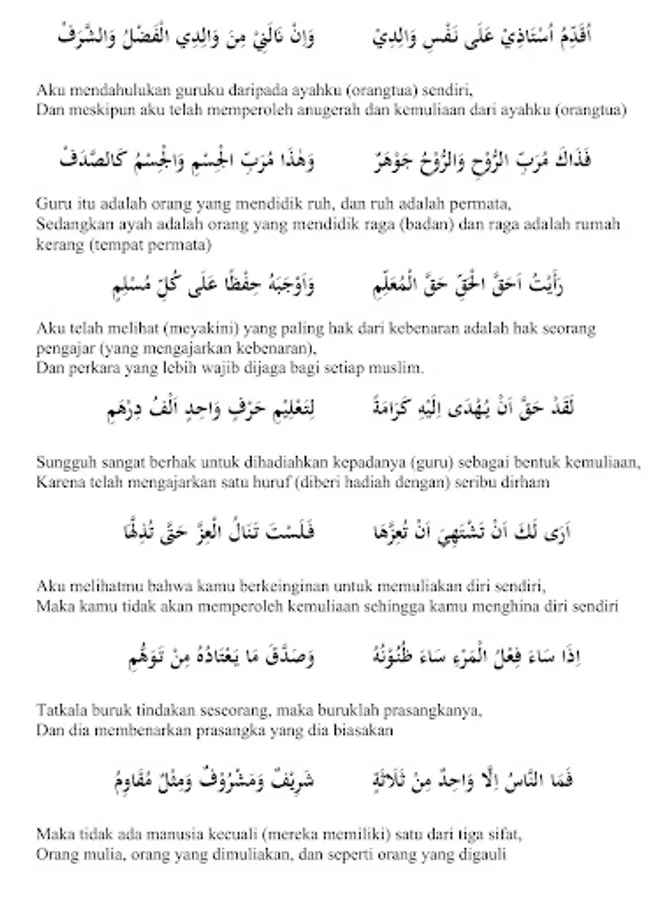 اُقَدِّمُ اُسْتَاذِيْ عَلَى نَفْسِ وَالِدِيْ وَاِنْ نَالَنِيْ مِنَ وَالِدِي الْفَضْلُ وَالشَّرَفْ
Aku mendahulukan guruku daripada ayahku (orangtua) sendiri,
Dan meskipun aku telah memperoleh anugerah dan kemuliaan dari ayahku (orangtua)
فَذَاكَ مُرَبِّ الرُّوْحِ وَالرُّوْحُ جَوْهَرٌ وَهٰذَا مُرَبِّ الْجِسْمِ وَالْجِسْمُ كَالصَّدَفْ
Guru itu adalah orang yang mendidik ruh, dan ruh adalah permata,
Sedangkan ayah adalah orang yang mendidik raga (badan) dan raga adalah rumah
kerang (tempat permata)
رَأَيْتُ اَحَقَّ الْحَقِّ حَقَّ الْمُعَلِّمِ وَاَوْجَبَهُ حِفْظًا عَلَى كُلِّ مُسْلِمٍ
Aku telah melihat (meyakini) yang paling hak dari kebenaran adalah hak seorang
pengajar (yang mengajarkan kebenaran),
Dan perkara yang lebih wajib dijaga bagi setiap muslim.
لَقَدْ حَقَّ اَنْ يُهْدَى اِلَيْهِ كَرَامَةً لِتَعْلِيْمِ حَرْفٍ وَاحِدٍ اَلْفُ دِرْهَمِ
Sungguh sangat berhak untuk dihadiahkan kepadanya (guru) sebagai bentuk kemuliaan,
Karena telah mengajarkan satu huruf (diberi hadiah dengan) seribu dirham
اَرَى لَكَ اَنْ تَشْتَهِيَ اَنْ تُعِزَّهَا فَلَسْتَ تَنَالُ الْعِزَّ حَتَّى تُذِلَّهَا
Aku melihatmu bahwa kamu berkeinginan untuk memuliakan diri sendiri,
Maka kamu tidak akan memperoleh kemuliaan sehingga kamu menghina diri sendiri
اِذَا سَاءَ فِعْلُ الْمَرْءِ سَاءَ ظُنُوْنُهُ وَصَدَّقَ مَا يَعْتَادُهُ مِنْ تَوَهُّمِ
Tatkala buruk tindakan seseorang, maka buruklah prasangkanya,
Dan dia membenarkan prasangka yang dia biasakan
فَمَا النَّاسُ اِلَّا وَاحِدٌ مِنْ ثَلَاثَةٍ شَرِيْفٌ وَمَشْرُوْفٌ وَمِثْلٌ مُقَاوِمُ
Maka tidak ada manusia kecuali (mereka memiliki) satu dari tiga sifat,
Orang mulia, orang yang dimuliakan, dan seperti orang yang digauli